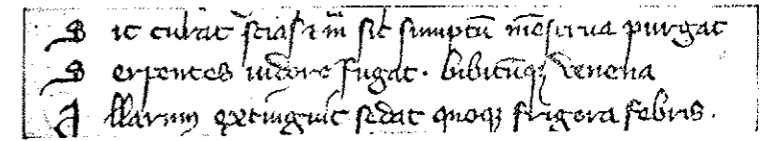 S ic curat sciasi m̄ sic sumptū mēstrua purgat
S erpentes nidore fugat. bibitūqꝫ venena
I llarum extinguit sedat quoqꝫ frigora febris.